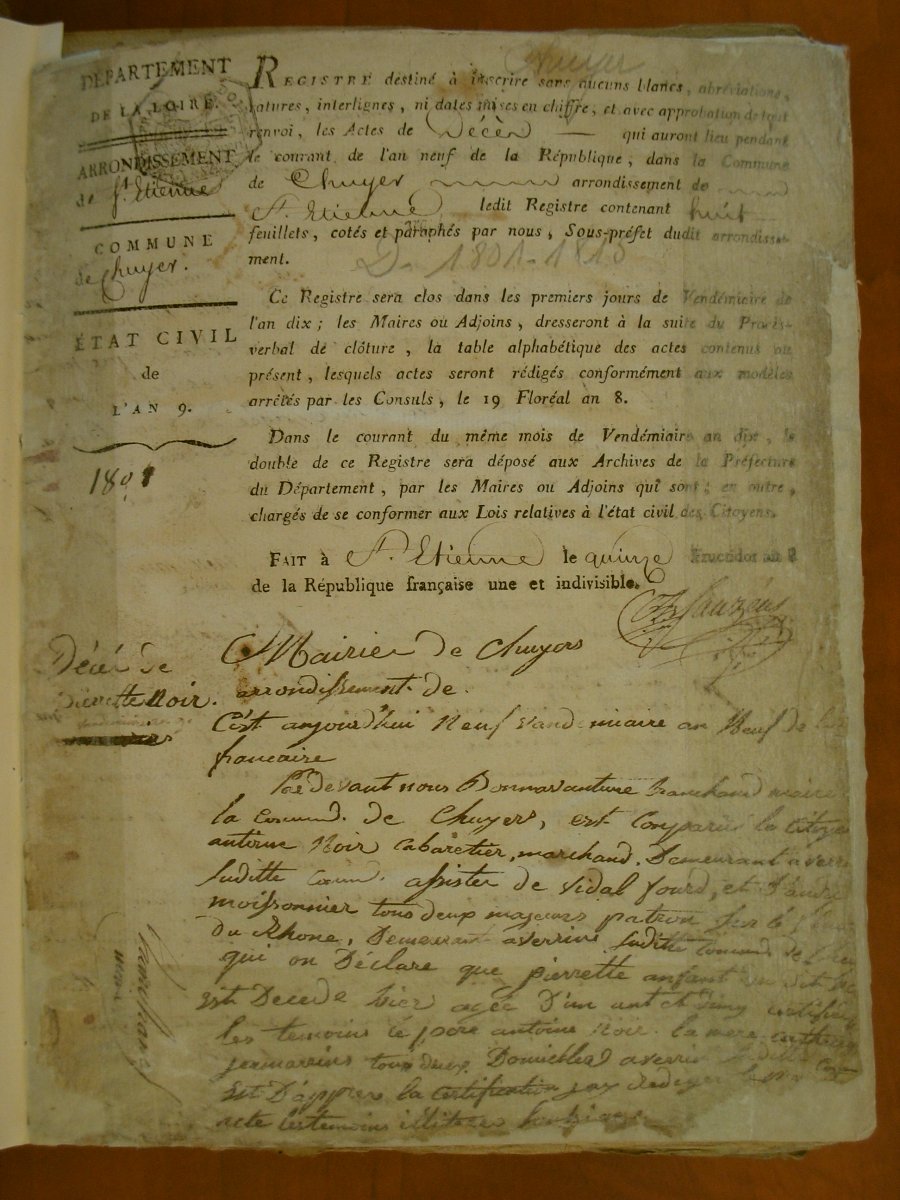 DÉPARTEMENT
DE LA LOIRE.
ARRONDISSEMENT
de St. Etienne
COMMUNE
de Chuyer.
ÉTAT CIVIL
de
L'AN 9.
1801
Chuyer
REGISTRE destiné à inscrire sans aucuns blancs, abréviations,
ratures, interlignes, ni dates mises en chiffre, et avec approbation de tout
renvoi, les Actes de Décès — qui auront lieu pendant
le courant de l'an neuf de la République, dans la Commune
de Chuyer arrondissement de
St. Etienne ledit Registre contenant huit
feuillets, cotés et paraphés par nous, Sous-préfet dudit arrondisse-
ment.
D. 1801-1813
Ce Registre sera clos dans les premiers jours de Vendémiaire de
l'an dix ; les Maires ou Adjoins, dresseront à la suite du Procès-
verbal de clôture, la table alphabétique des actes contenus au
présent, lesquels actes seront rédigés conformément aux modèles
arrêtés par les Consuls, le 19 Floréal an 8.
Dans le courant du même mois de Vendémiaire an dix, le
double de ce Registre sera déposé aux Archives de la Préfecture
du Département, par les Maires ou Adjoins qui sont ; en outre,
chargés de se conformer aux Lois relatives à l'état civil des Citoyens.
FAIT à St. Etienne le quinze Fructidor an 8
de la République française une et indivisible.
Décès de
pierrette Noir.
Mairie de Chuyers
arrondissement de
C'est aujourd'hui Neuf vandemiaire an Neuf de
francaise
Par devant nous Bonnavanture maire
la Commd. de Chuyers, est Comparu le Citoyen
antoine Noir Cabaretier, marchand, Demeurant a
Juditte Commd. assister de Vidal fourd, et
moissonnier tous deux majeurs patron sur le
du Rhone, Demeurant a verrins Juditte Commd
qui on Déclare que pierrette anfant
Est Decede hier agée D'un ant et
les temoins le pere antoine Noir la mere
tous deux Domicilies a verrin
Est D'appres la Certification
acte les temoins illitere